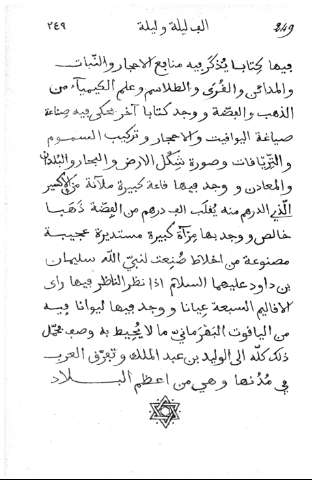 ٢٤٩ الف ليلة وليلة 249
فيها كتابا يُذكر فيه منافع الاحجار والنّبات
والمدائن والقُرى والطلاسم وعلم الكيمياء من
الذهب والفضّة ووجد كتابا آخر يحكى فيه صناعة
صياغة اليواقيت والاحجار وتركيب السموم
والترياقات وصورة شكل الارض والبحار والبُلدان
والمعادن ووجد فيها قاعة كبيرة ملآنة من الاكسير
الّذي الدرهم منه يُقلب الف درهم من الفضّة ذهبا
خالص ووجد بها مرآة كبيرة مستديرة عجيبة
مصنوعة من اخلاط صُنِعت لنبيّ الله سليمان
بن داود عليهما السلام اذا نظر الناظر فيها راى
الاقاليم السبعة عيانا ووجد فيها ليوانا فيه
من الياقوت البهرماني ما لا يُحيط به وصف فحمل
ذلك كلّه الى الوليد بن عبد الملك وتفرّق العرب
في مُدُنها وهي من اعظم البلاد